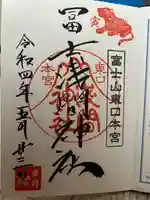 冨士山東口本宮
冨士浅間神社
東口
本宮
令和四年五月廿二日